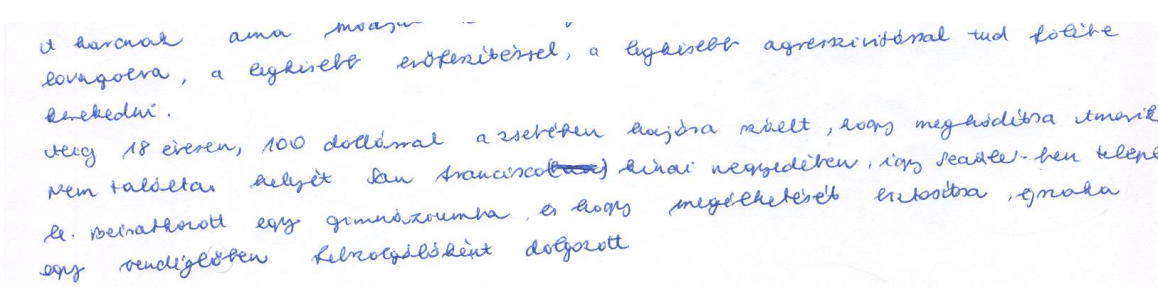 a harcnak ama módja
lovagolva, a legkisebb erőfeszítéssel, a legkisebb agresszivitással tud fölébe
kerekedni.
Még 18 évesen, 100 dollárral a zsebében hajóra szállt, hogy meghódítsa Amerik
Nem találta helyét San Francisco kínai negyedében, így Seattle-ben telepe
le. Beiratkozott egy gimnáziumba, és hogy megélhetését biztosítsa, éjszaka
egy vendéglőben felszolgálóként dolgozott